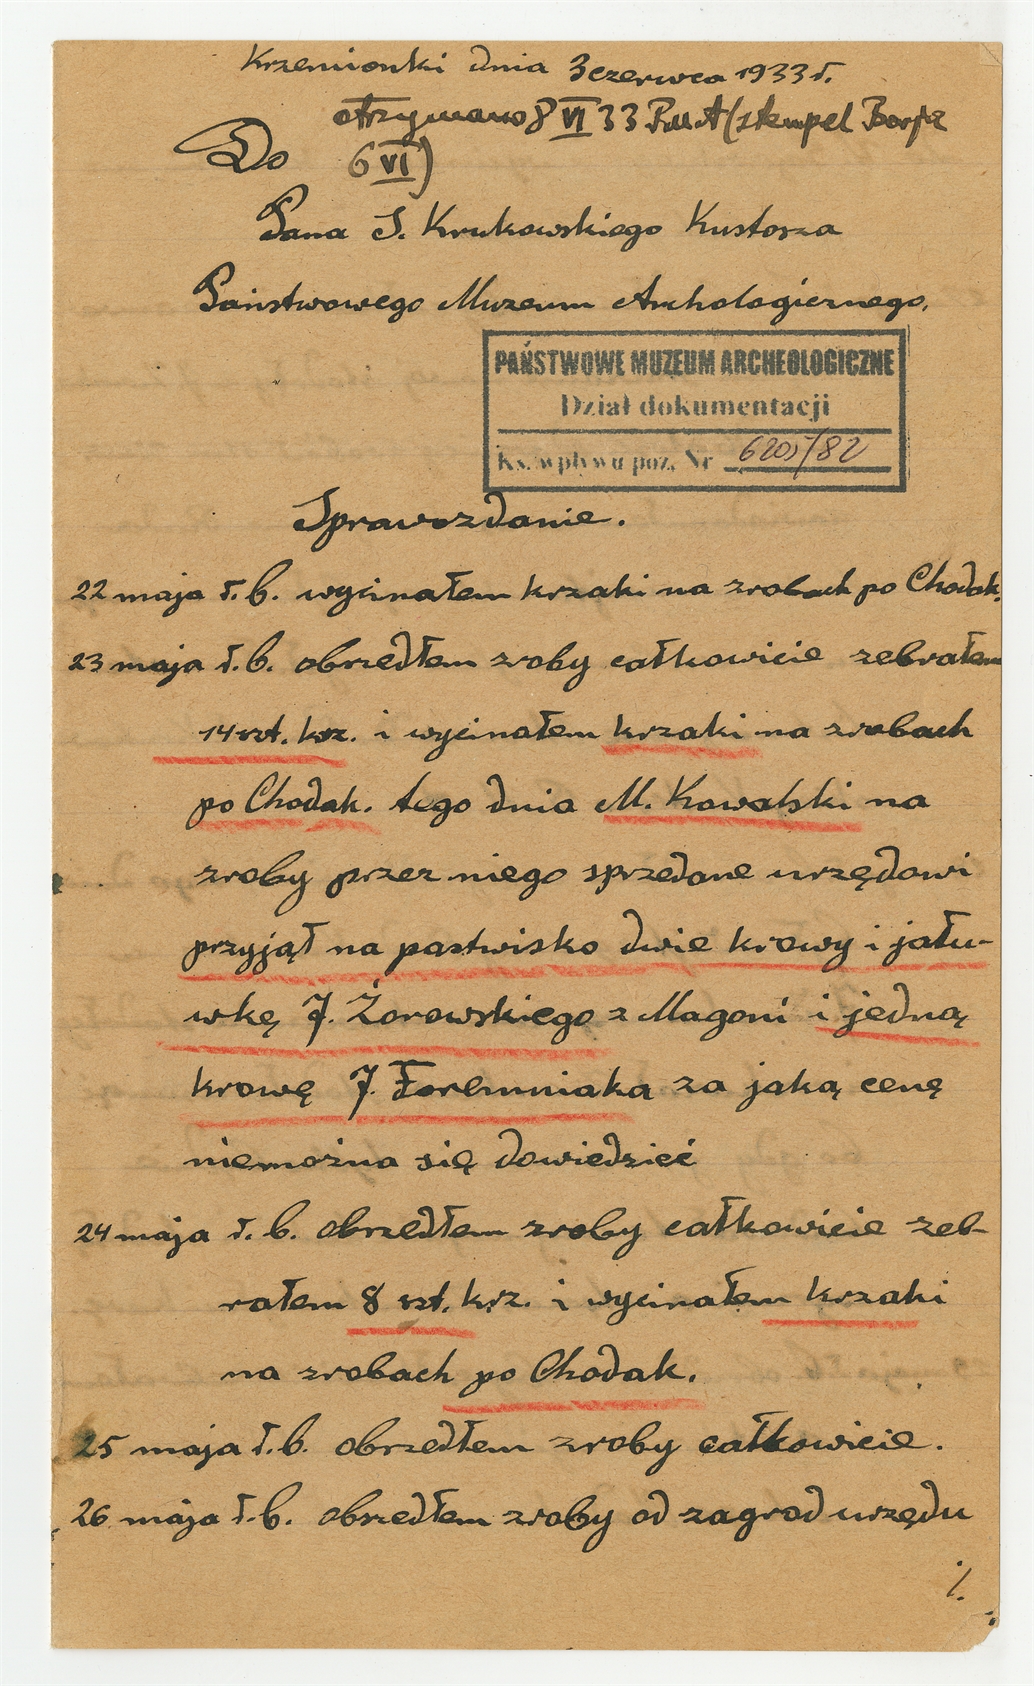 Krzemionki dnia 3 czerwca 1933 r.
otrzymano 8 VI 33 PMA (stempel
6 VI)
Do
Pana S. Krukowskiego Kustosza
Państwowego Muzeum Archologicznego.
PAŃSTWOWE MUZEUM ARCHEOLOGICZNE
Dział dokumentacji
Ks. wpływu poz. Nr 6205/82
Sprawozdanie.
22 maja r.b. wycinałem krzaki na zrobach po Chodak.
23 maja r.b. obrzedłem zroby całkowicie zebrałem
14 szt. krz. i wycinałem krzaki na zrobach
po Chodak. tego dnia M. Kowalski na
zroby przez niego sprzedane urzędowi
przyjął na pastwisko dwie krowy i jału-
wkę J. Żorowskiego z Magoni i jedną
krowę J. Foremniaka za jaką cenę
niemożna się dowiedzieć
24 maja r.b. obrzedłem zroby całkowicie zeb-
rałem 8 szt. krz. i wycinałem krzaki
na zrobach po Chodak.
25 maja r.b. obrzedłem zroby całkowicie.
26 maja r.b. obrzedłem zroby od zagrod urzędu
./.